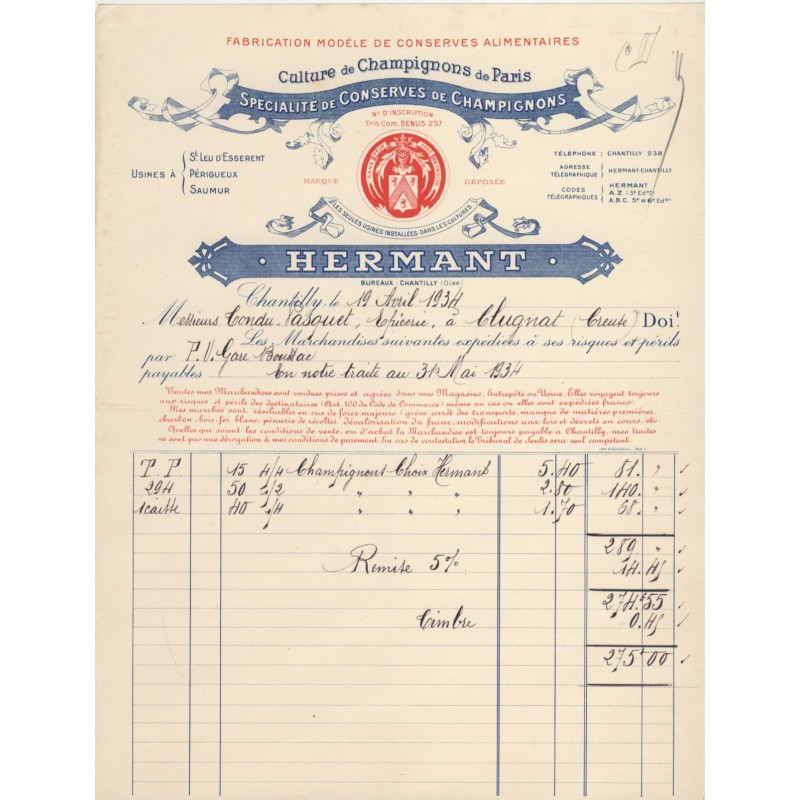 FABRICATION MODÈLE DE CONSERVES ALIMENTAIRES
Culture de Champignons de Paris
SPÉCIALITÉ DE CONSERVES DE CHAMPIGNONS
N° D'INSCRIPTION
Trib. Com. SENLIS 257
USINES À
St LEU D'ESSERENT
PÉRIGUEUX
SAUMUR
MARQUE DÉPOSÉE
TÉLÉPHONE : CHANTILLY 238
ADRESSE TÉLÉGRAPHIQUE : HERMANT-CHANTILLY
CODES TÉLÉGRAPHIQUES
HERMANT
A.Z. (3e Edon)
A.B.C. 5e et 6e Edon
LES SEULES USINES INSTALLÉES DANS LES CULTURES
HERMANT
BUREAUX : CHANTILLY (Oise)
Chantilly, le 19 Avril 1934
Messieurs Condu-Pasquet, Epicerie, à Clugnat (Creuse) Doit
Les Marchandises suivantes expédiées à ses risques et périls
par P.V. Gare Boussac
payables En notre traite au 31 Mai 1934
Toutes mes Marchandises sont vendues prises et agrées dans mes Magasins, Entrepôts ou Usine. Elles voyagent toujours
aux risques et périls des destinataires (Art. 100 du Code de Commerce) même au cas ou elles sont expédiées franco.
Mes marchés sont résiliables en cas de force majeure : grève, arrêt des transports, manque de matières premières,
charbon, bois, fer blanc, pénurie de récoltes, dévalorisation du franc, modifications aux lois et décrets en cours, etc.
Quelles que soient les conditions de vente, ou d'achat la Marchandise est toujours payable à Chantilly, mes traites
ne sont pas une dérogation à mes conditions de paiement. En cas de contestation le Tribunal de Senlis sera seul compétent.
P.P 15 4/4 Champignons Choix Hermant 5.40 81. "
294 50 1/2 " " " 2.80 140. "
1 caisse 40 1/4 " " " 1.70 68. "
289 "
Remise 5% 14.45
274.55
Timbre 0.45
275 00